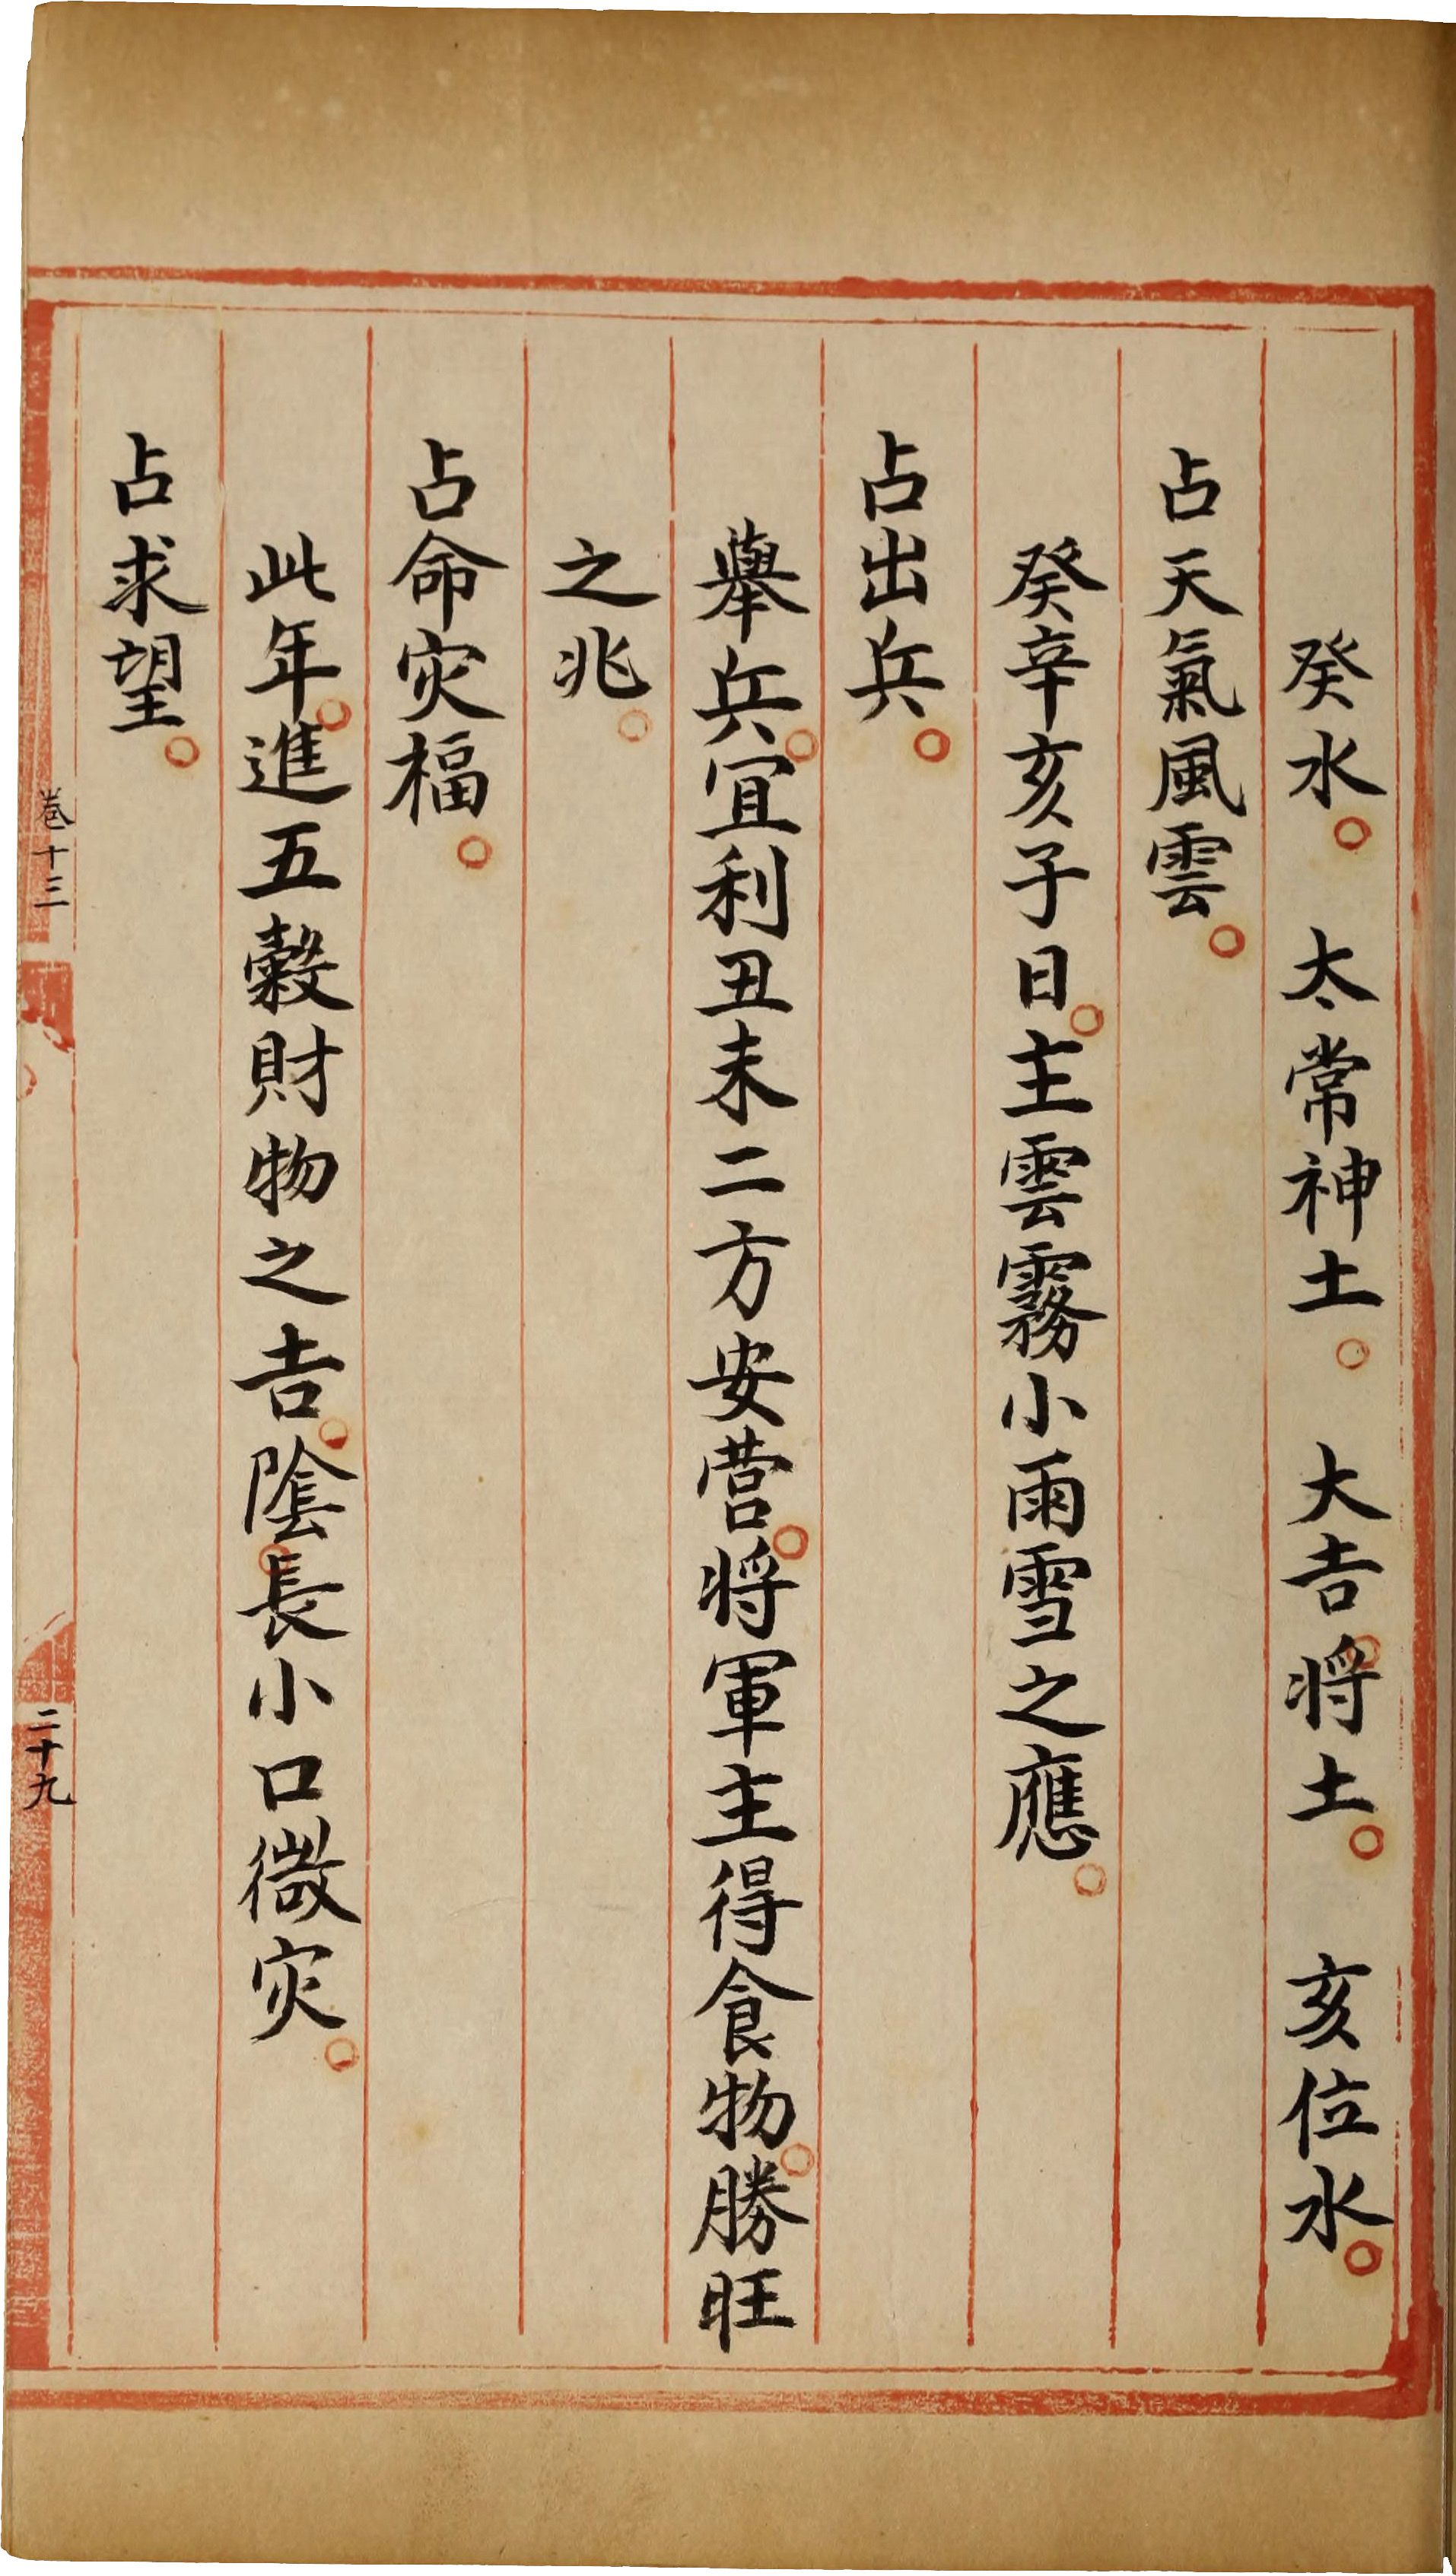 癸水。　太常神土。　大吉将土。　亥位水。
占天氣風雲。
癸辛亥子日。主雲霧小雨雪之應。
占出兵。
舉兵。宜利丑未二方安营。将軍主得食物。勝旺
之兆。
占命灾福。
此年。進五穀財物之吉。陰。長小口微灾。
占求望。
卷十三
二十九